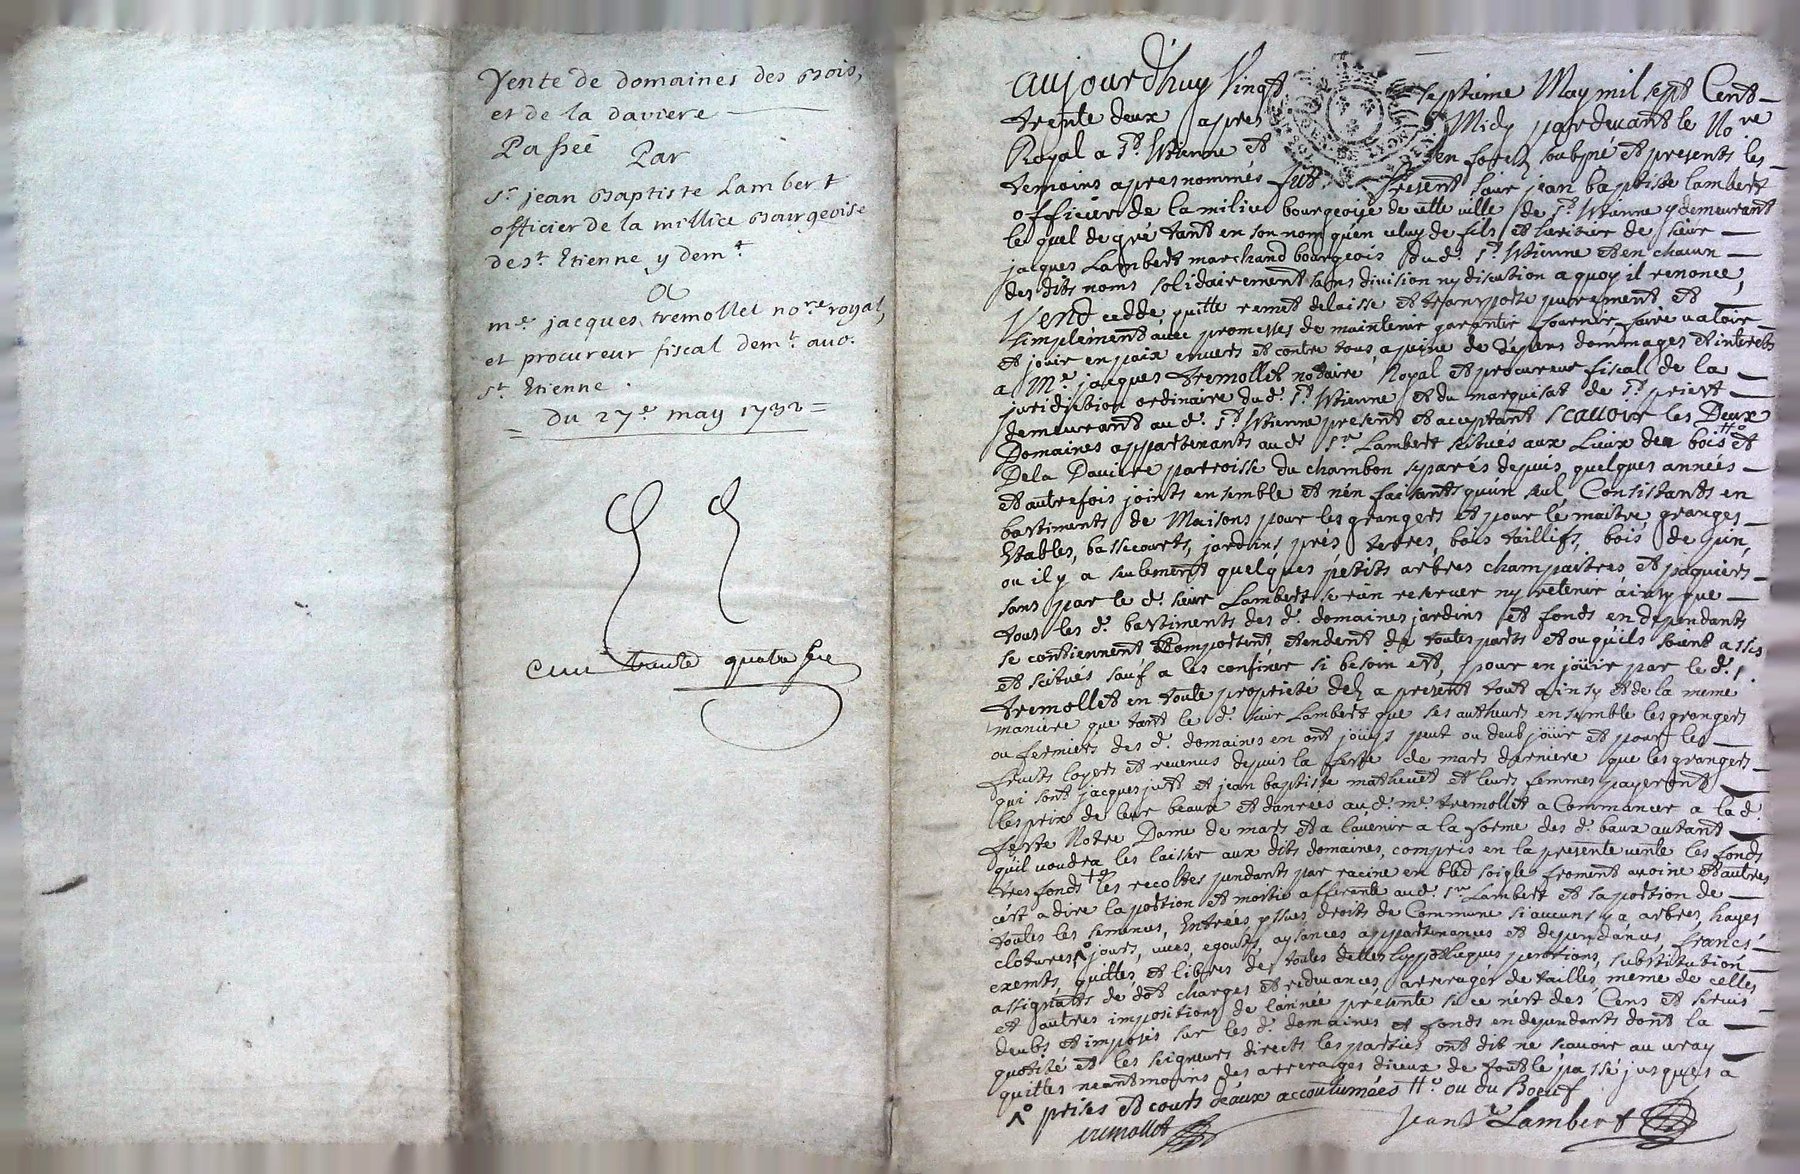 Vente de domaines des Bois,
et de la daviere
Passée Par
Sr. jean Baptiste Lambert
officier de la millice Bourgeoise
de St. Etienne y demt.
a
me. jacques tremollet nore. royal,
et procureur fiscal demt. aud.
St. Etienne.
= du 27e. may 1732 =
cent trente quatre
aujourd'huy Vingt septieme May mil sept Cent
trente deux apres Midy pardevant le Nore
Royal a St. Etienne et en forest soubsné et presents les
temoins apres nommés fut Present sieur jean baptiste lambert
officier de la milice bourgeoise de cette ville de St. Etienne y demeurant
lequel de gré tant en son nom qu'en celuy de fils et heritier de sieur
jacques Lambert marchand bourgeois dud. St. Etienne et en chacun
des dits noms solidairement sans division ny discution a quoy il renonce,
Vend cedde quitte remet delaisse et transporte purement et
simplement avec promesses de maintenir garantir fournir faire valoir
et jouir en paix envers et contre tous, a peine de dépens dommages et interets
a Me. jacques tremollet notaire Royal et procureur fiscal de la
jurisdiction ordinaire dud. St. Etienne et du marquisat de St. priest
demeurant aud. St. Etienne present et acceptant scavoir les Deux
Domaines appartenants aud. Sr. Lambert scitués aux Lieux des bois et
De la Daviere parroisse du chambon separés depuis quelques années
et autrefois joints ensemble et n'en faisants qu'un seul Consistants en
bastiments de Maisons pour les grangers et pour le maitre granges
Etables, bassecourts, jardins, prés terres, bois taillifs, bois de pin,
ou il y a seulement quelques petits arbres champaitres et paquiers
sans par le d. sieur Lambert se rien reserver ny retenir ainsy que
tous les d. bastiments des d. domaines jardins et fonds en dependants
se contiennent comportent etendent de toutes parts et ou qu'ils soient assis
et scitués sauf a les confiner si besoin est, pour en joüir par le d.
tremollet en toute propriété dez a present tout ainsy et de la meme
maniere que tant le d. sieur Lambert que ses autheurs ensemble les grangers
ou fermiers des d. domaines en ont joüis peut ou deub joüir et pour les
fruits loyers et revenus depuis la feste de mars derniere que les grangers
qui sont jacques just et jean baptiste mathevet et leurs femmes payeront
les prix de leur beaux et danrées aud. me. tremollet a Commancer a la d.
feste Notre Dame de mars et a l'avenir a la forme des d. baux autant
qu'il voudra les laisser aux dits domaines, compris en la presente vente les fonds
tres fonds les recoltes pendants par racine en bled soigle froment avoine et autres
c'est a dire la portion et moitié afferente aud. Sr. Lambert et sa portion de
toutes les semances, Entrées yssues droits de Commune si aucuns y a arbres, hayes
clotures, jours, vues, egouts, aysances appartenances et dependances, francs
exempts quittes et libres de toutes dettes hypotheques pentions, substitution
assignatts de dot charges et redevances arrerages de tailles, meme de celles
et autres impositions de l'année présente si ce n'est des Cens et servis
deubs et imposés sur les d. domaines et fonds en dependants dont la
quotité et les seigneurs directs les parties ont dit ne scavoir au vray
quittes neantmoins des arrerages d'iceux de tout le passé jusques a
prises et cours d'eaux accoutumées ou du Boeuf
tremollet
Jean B. Lambert